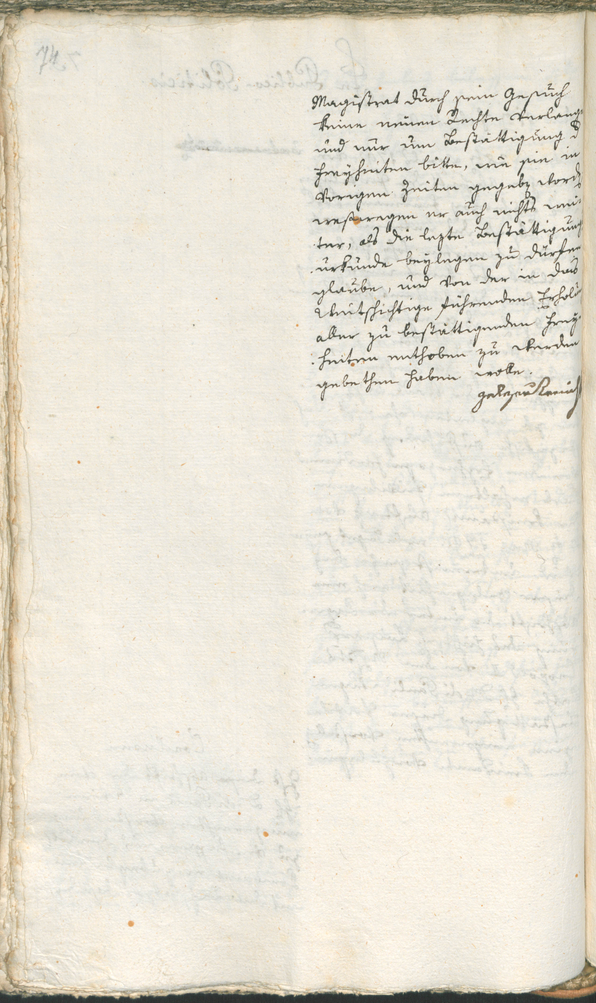 74
Magistrat durch sein Gesuch
keine neuen Rechte verlange
und nur um Bestättigung d
Freyheiten bitte, wie sie in
vorigen Zeiten gegeben word
weswegen er auch nichts wei
ter, als die lezte Bestättigung
urkunde beylegen zu dürfen
glaube, und von der in das
Weitschichtige führenden Erholu
aller zu bestättigenden Frey
heiten enthoben zu werden
gebethen haben wolle.